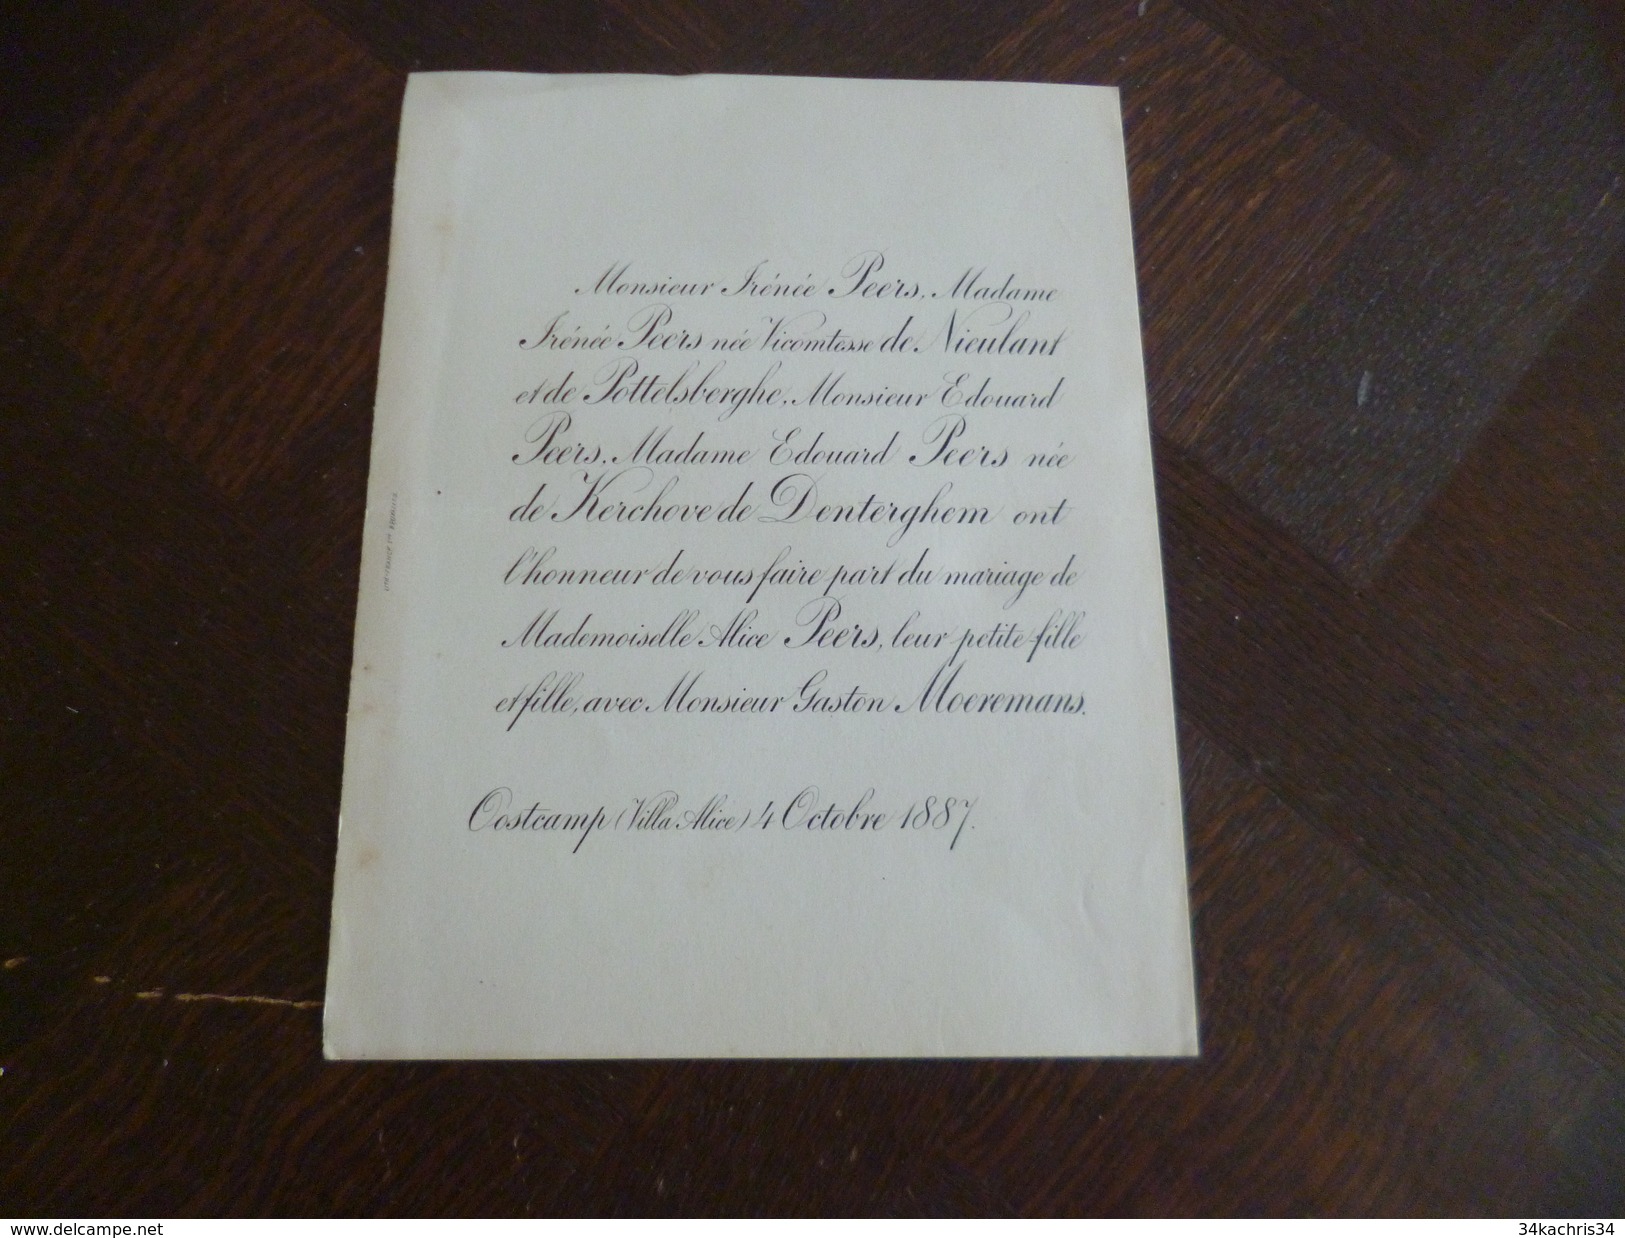 Monsieur Irénée Peers, Madame
Irénée Peers née Vicomtesse de Nieulant
et de Pottelsberghe, Monsieur Edouard
Peers, Madame Edouard Peers née
de Kerchove de Denterghem ont
l'honneur de vous faire part du mariage de
Mademoiselle Alice Peers, leur petite-fille
et fille, avec Monsieur Gaston Moeremans.
Oostcamp (Villa Alice) 4 Octobre 1887.
www.delcampe.net
34kachris34